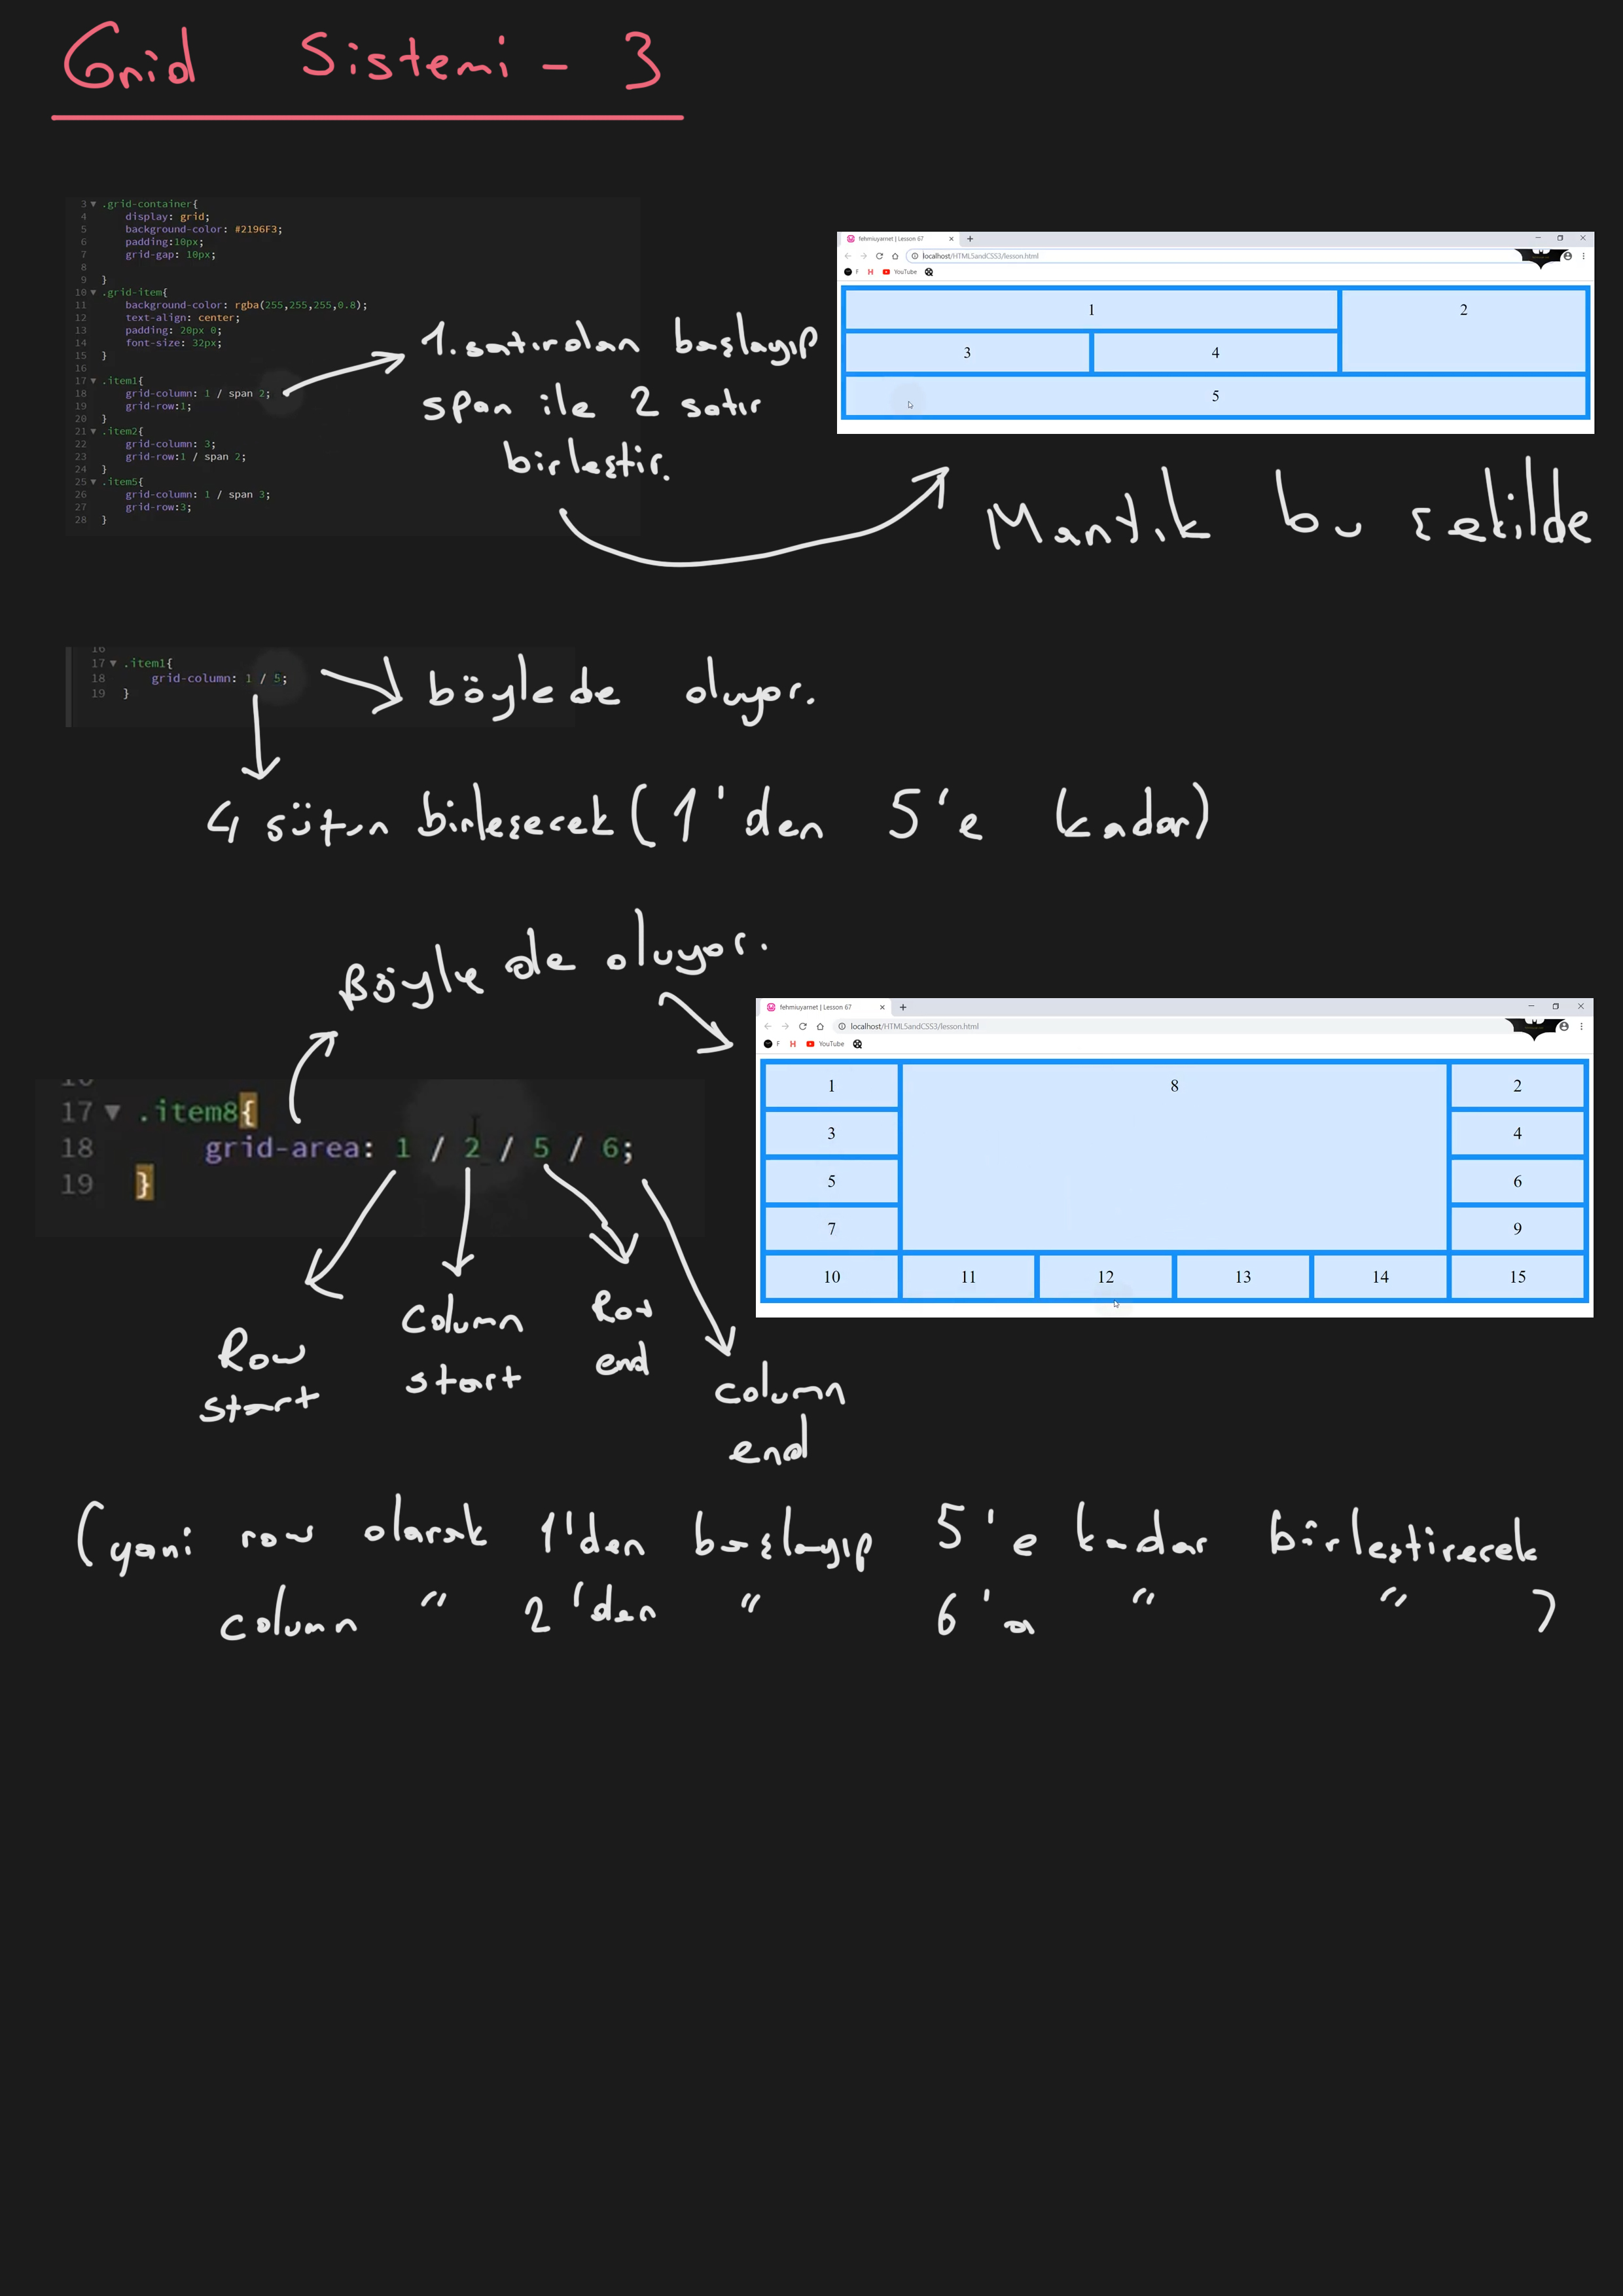 Grid Sistemi - 3
3 .grid-container{
4 display: grid;
5 background-color: #2196F3;
6 padding:10px;
7 grid-gap: 10px;
8
9 }
10 .grid-item{
11 background-color: rgba(255,255,255,0.8);
12 text-align: center;
13 padding: 20px 0;
14 font-size: 32px;
15 }
16
17 .item1{
18 grid-column: 1 / span 2;
19 grid-row:1;
20 }
21 .item2{
22 grid-column: 3;
23 grid-row:1 / span 2;
24 }
25 .item5{
26 grid-column: 1 / span 3;
27 grid-row:3;
28 }
1. satırdan başlayıp
span ile 2 satır
birleştir.
fehmiuyarnet | Lesson 67
localhost/HTML5andCSS3/lesson.html
F H YouTube
1 2
3 4
5
Mantık bu şekilde
16
17 .item1{
18 grid-column: 1 / 5;
19 }
böylede oluyor.
4 sütun birleşecek (1'den 5'e kadar)
Böyle de oluyor.
fehmiuyarnet | Lesson 67
localhost/HTML5andCSS3/lesson.html
F H YouTube
1 8 2
3 4
5 6
7 9
10 11 12 13 14 15
16
17 .item8{
18 grid-area: 1 / 2 / 5 / 6;
19 }
Row start
Column start
Row end
column end
(yani row olarak 1'den başlayıp 5'e kadar birleştirecek
column " 2'den " 6'a " " )